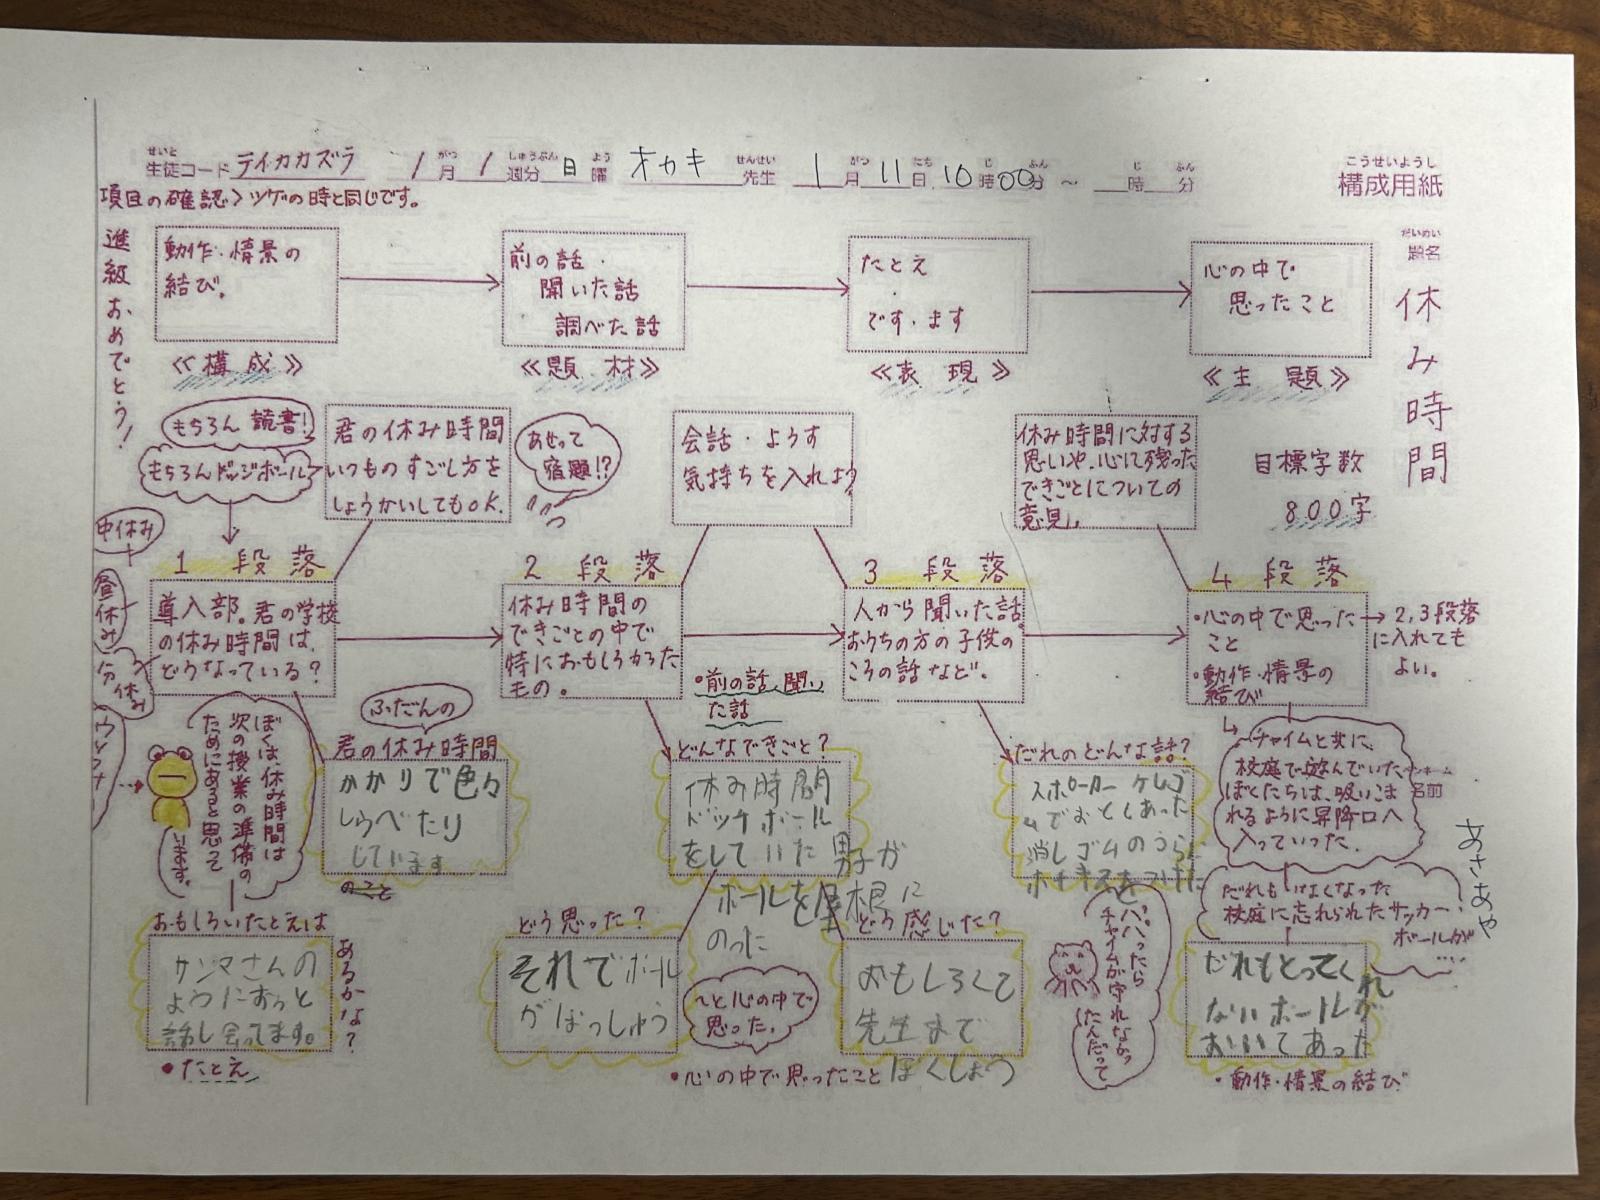 せいと
生徒コード テイカカズラ 1月 1週分 日曜 オカキ 先生 1月11日 10時00分 ～ 時 分
がつ しゅうぶん よう せんせい がつ にち じ ふん じ ふん
こうせいようし
構成用紙
項目の確認＞ツゲの時と同じです。
だいめい
題名
休み時間
目標字数
800字
進級おめでとう！
動作・情景の
結び。
≪構成≫
前の話・
聞いた話
調べた話
≪題材≫
たとえ
・
です・ます
≪表現≫
心の中で
思ったこと
≪主題≫
もちろん読書!
もちろんドッジボール
君の休み時間
いつものすごし方を
しょうかいしてもOK.
あせって
宿題!?
会話・ようす
気持ちを入れよう
休み時間に対する
思いや、心に残った
できごとについての
意見。
中休み
昼休み
分休み
1 段落
導入部。君の学校
の休み時間は、
どうなっている？
2 段落
休み時間の
できごとの中で
特におもしろかった
もの。
3 段落
人から聞いた話
おうちの方の子供の
ころの話など。
4 段落
・心の中で思った
こと
・動作・情景の
結び
→2,3段落
に入れても
よい。
・前の話、聞い
た話
ぼくは、休み時間は
次の授業の準備の
ためにあると思って
います。
ふだんの
君の休み時間
かかりで色々
しらべたり
しています
のこと
どんなできごと？
休み時間
ドッチボール
をしていた男子が
ボールを屋根に
のった
だれのどんな話？
スポーカー ケしゴ
ムでおとしあった
消しゴムのうらに
ホチキスをつけた
チャイムと共に、
校庭で遊んでいた
ぼくたちは、吸いこま
れるように昇降口へ
入っていった.
名前
あさあや
だれもいなくなった
校庭に忘れられたサッカー・
ボールが
....
おもしろいたとえは
あるかな？
サンマさんの
ようにずっと
話し会ってます。
・たとえ
どう思った？
それでボール
がぼっしゅう
～と心の中で
思った.
・心の中で思ったこと
どう感じた？
おもしろくて
先生まで
ばくしょう
ハハハったら
チャイムが守れなかっ
たんだって
だれもとってくれ
ないボールが
おいてあった
・動作・情景の結び